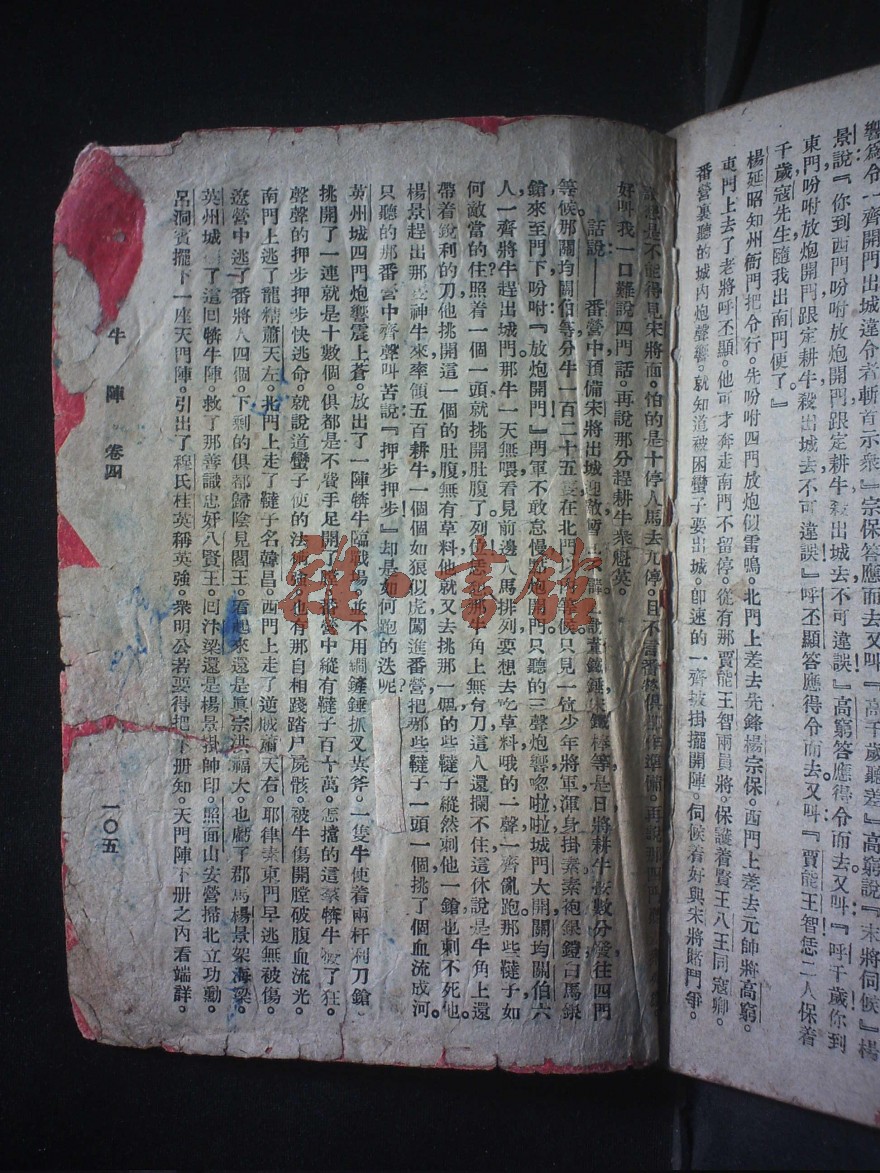 響為令一齊開門出城違令者斬首示衆』宗保答應而去又叫『高千歲聽差』高窮說『末將伺候』楊
景說『你到西門吩咐放炮開門跟定耕牛殺出城去不可違誤』高窮答應得令而去又叫『呼千歲你到
東門吩咐放炮開門跟定耕牛殺出城去不可違誤』呼丕顯答應得令而去又叫『賈能王智恁二人保着
千歲寇先生隨我出南門便了。』
楊延昭知州衙門把令行。先吩咐四門放炮似雷鳴。北門上差去先鋒楊宗保。西門上差去元帥將高窮。
東門上去了老將呼丕顯。他可才奔走南門不留停。從有那賈能王智兩員將。保護着賢王八王同寇卿。
番營裏聽的城內炮聲響。就知道被困蠻子要出城。卽速的一齊披掛擺開陣。伺候着好與宋將賭鬥爭。
是不能得見宋將面。怕的是十停人馬去九停。且不言番營俱準備。再說那四門
好叫我一口難說四門話。再說那分趕耕牛衆魁英。
話說——番營中預備宋將出城迎敵暫且不
等候那關均關伯等分牛一百二十五隻在北門以內等候只見一位少年將軍渾身掛素素袍銀鎧白馬銀
鎗來至門下吩咐『放炮開門』門軍不敢怠慢點炮開門只聽的三聲炮響唿啦啦城門大開關均關伯六
人一齊將牛趕出城門。那牛一天無喂看見前邊人馬排列要想去吃草料哦的一聲一齊亂跑那些韃子如
何敵當的住照着一個一頭就挑開肚腹了列位那牛角上無有刀這人還攔不住這休說是牛角上還
帶着銳利的刀他挑開這一個的肚腹無有草料他就又去挑那一個的些韃子縱然刺他一鎗也刺不死他。
楊景趕出那些神牛來率領五百耕牛一個個如狼似虎闖進番營把那些韃子一頭一個挑了個血流成河。
只聽的那番營中齊聲叫苦說『押步押步』却是如何跑的迭呢？
英州城四門炮響震上蒼。放出了一陣犇牛臨戰場。並不用鐧鏟錘抓叉英斧。一隻牛使着兩杆利刀鎗。
挑開了一連就是十數個。俱都是不費手足開了膛。番營中縱有韃子百十萬。怎擋的這羣犇牛發了狂。
聲聲的押步押步快逃命。就說道蠻子使的法術強。也有那自相踐踏尸屍骸。被牛傷開膛破腹血流光。
南門上逃了龍精蕭天左。北門上走了韃子名韓昌。西門上走了逆賊蕭天右。耶律素東門早逃無被傷。
遼營中逃了番將八四個。下剩的俱都歸陰見閻王。看起來還是眞宗洪福大。也虧了郡馬楊景架海梁。
英州城了這回犇牛陣。救了那善識忠奸八賢王。囘汴梁還是楊景掛帥印。照面山安營掃北立功勳。
呂洞賓擺下一座天門陣。引出了穆氏桂英稱英強。衆明公若要得把下册知。天門陣下册之內看端詳。
牛陣。卷四
一〇五
雜·書館